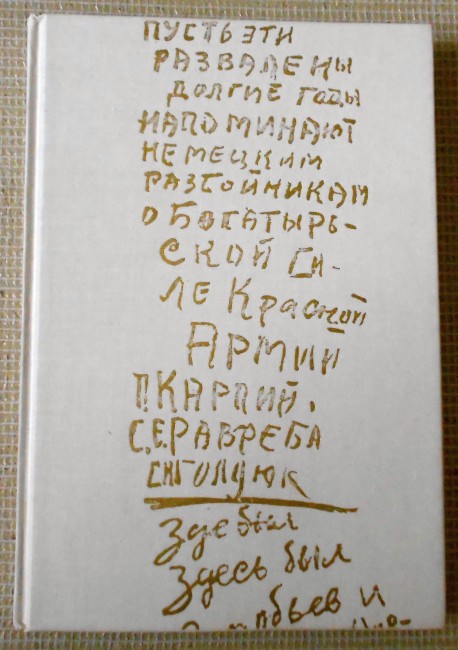 ПУСТЬ ЭТИ
РАЗВАЛЕНЫ
ДОЛГИЕ ГОДЫ
НАПОМИНАЮТ
НЕМЕЦКИМ
РАЗБОЙНИКАМ
О БОГАТЫРЬ-
СКОЙ СИ-
ЛЕ Красной
АРМИИ
П. КАРПИЙ.
С.Е. РАВРЕБА
Здесь был